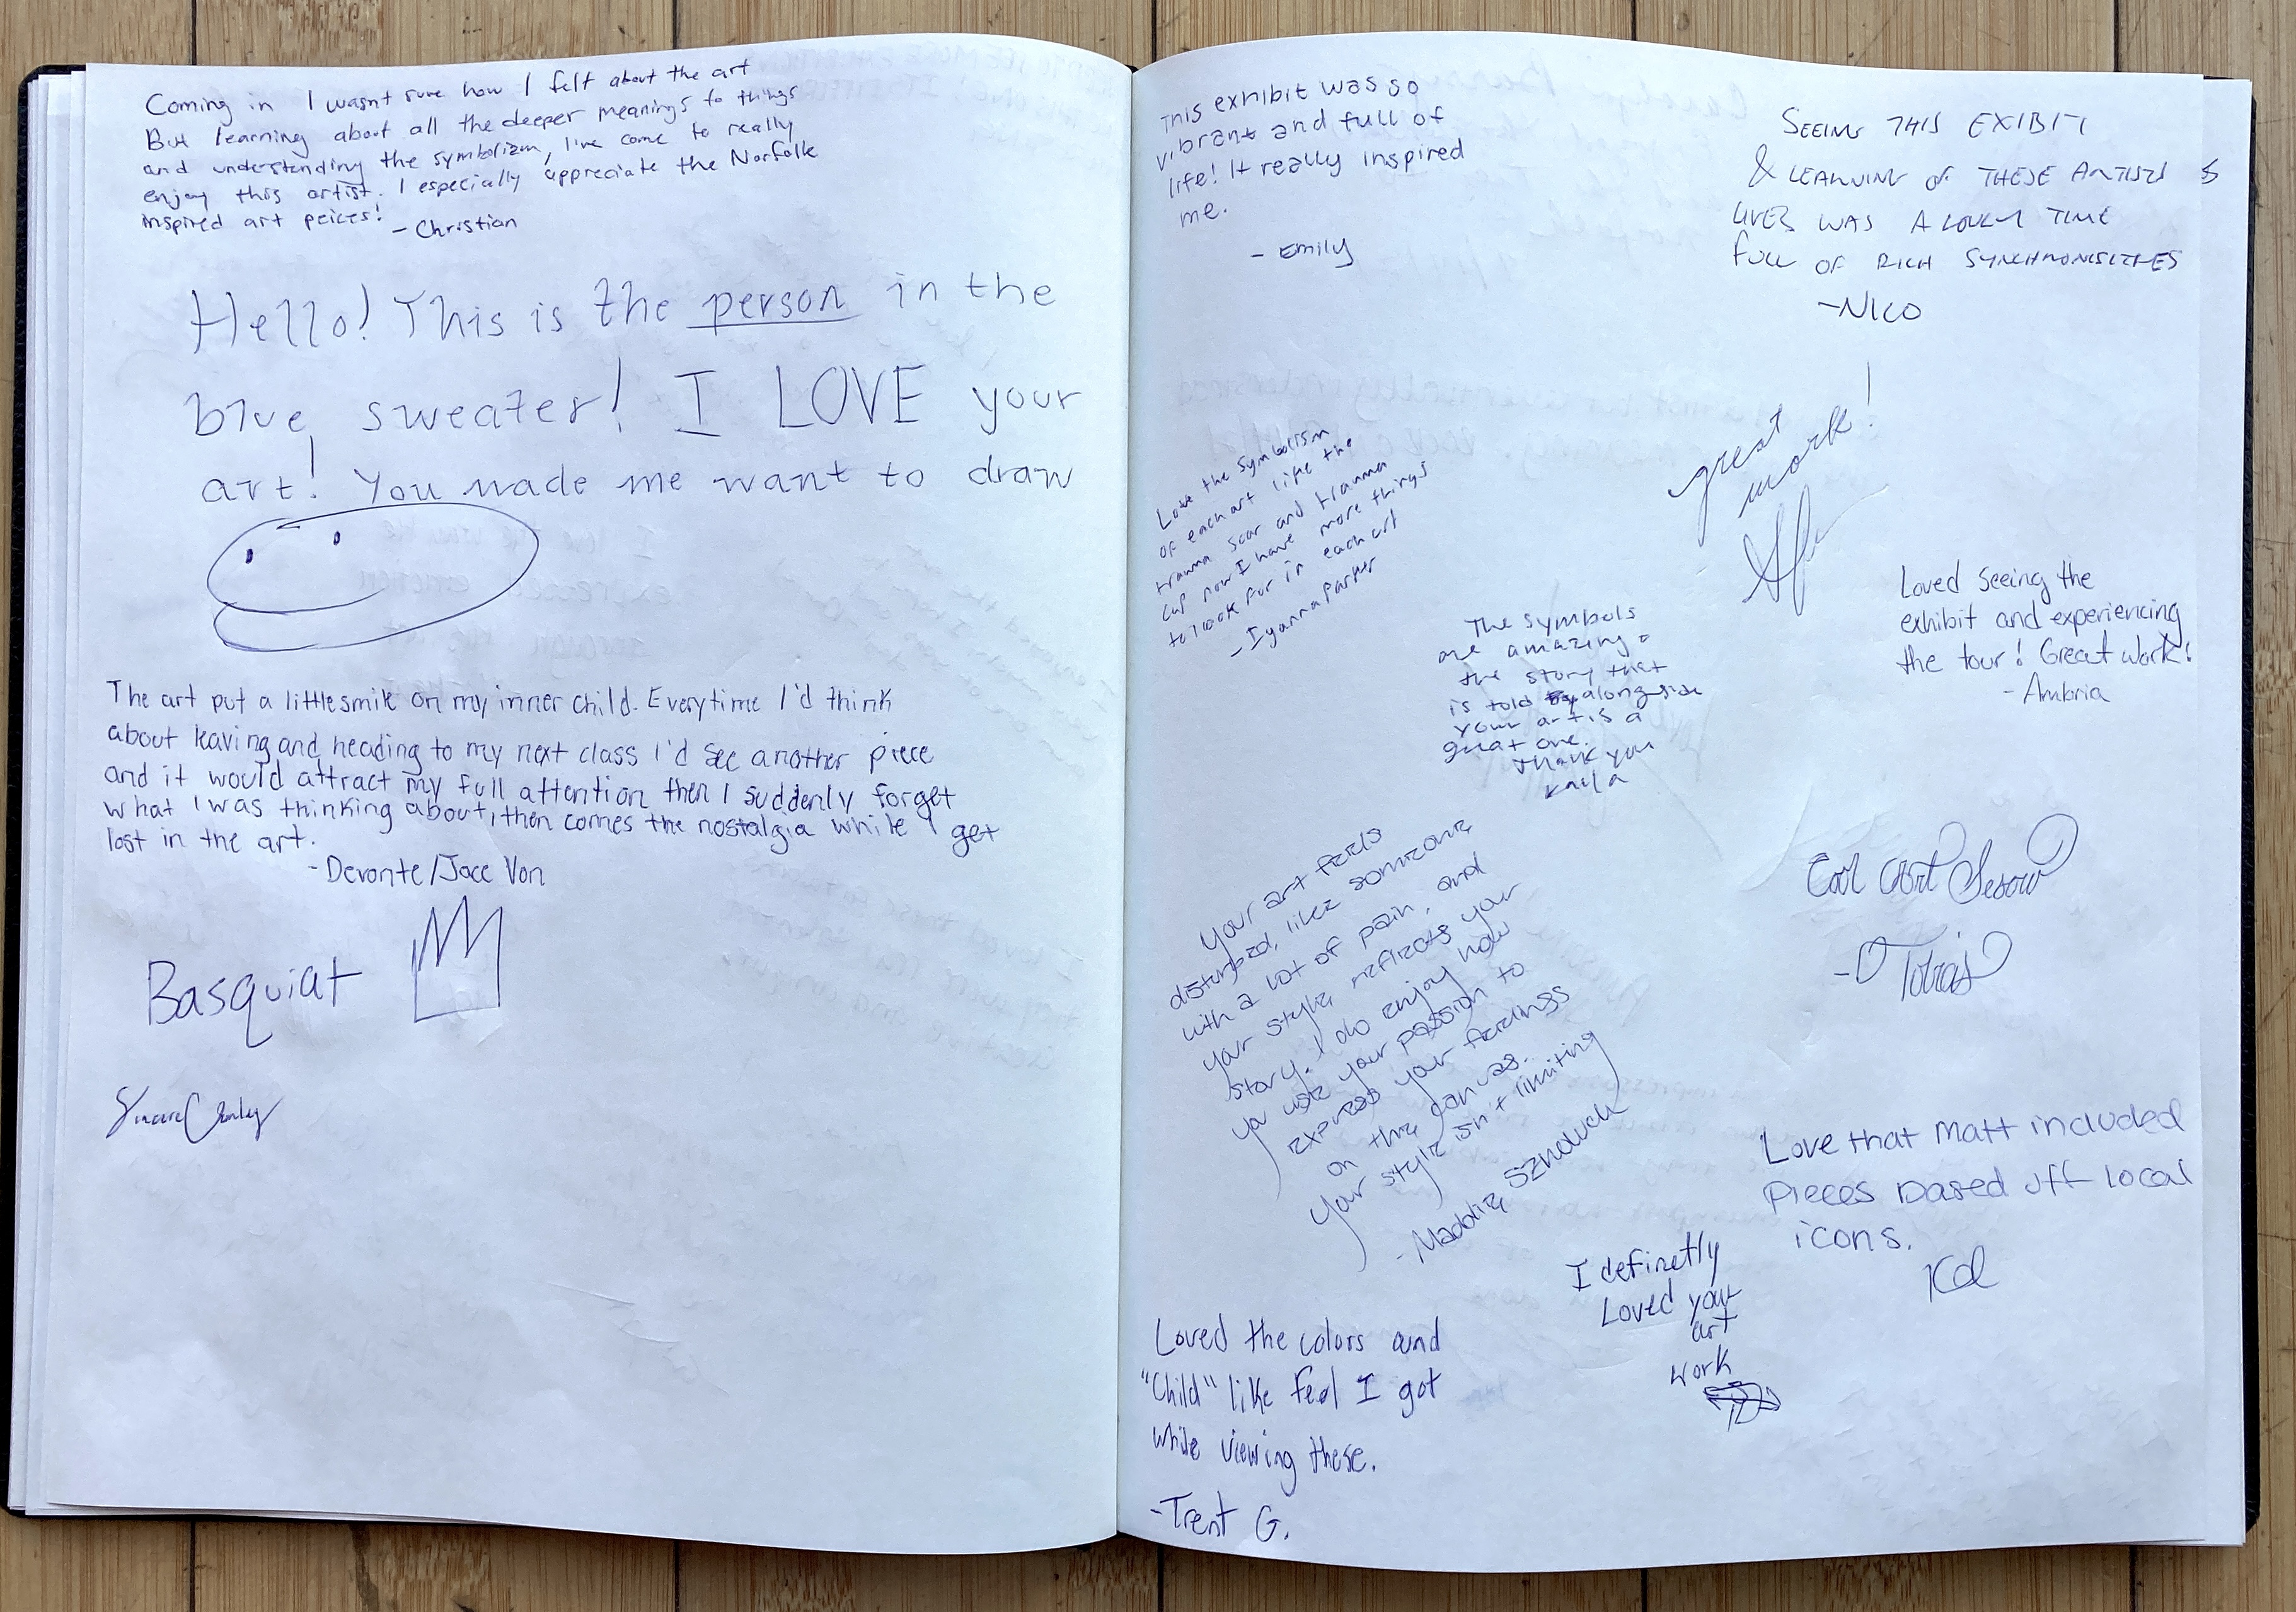 Coming in I wasnt sure how I felt about the art
But learning about all the deeper meanings to things
and understanding the symbolizm, I've come to really
enjoy this artist. I especially appreciate the Norfolk
inspired art peices!
- Christian
Hello! This is the person in the
blue sweater! I LOVE your
art! You made me want to draw
The art put a little smile on my inner child. Everytime I'd think
about leaving and heading to my next class I'd see another piece
and it would attract my full attention then I suddenly forget
what I was thinking about, then comes the nostalgia while I get
lost in the art.
- Devonte/Jace Von
Basquiat
This exhibit was so
vibrant and full of
life! It really inspired
me.
- Emily
SEEING THIS EXIBIT
& LEARNING OF THESE ARTISTS
LIVES WAS A LOVELY TIME
FULL OF RICH
-NICO
great
work!
Love the symbolism
of each art like the
trauma scar and trauma
cup now I have more things
to look for in each art
- Iyanna Parker
The symbols
are amazing
the story that
is told alongside
your art is a
great one.
Thank you
Kaila
Loved seeing the
exhibit and experiencing
the tour! Great work!
- Ambria
Your art feels
disturbed, like someone
with a lot of pain, and
your style reflects your
story. I do enjoy how
you use your passion to
express your feelings
on the canvas.
Your style isn't limiting
- Maddie
- Tobias
Love that Matt included
pieces based off local
icons.
I definetly
Loved your
art
work
Loved the colors and
"Child" like feel I got
while viewing these.
- Trent G.